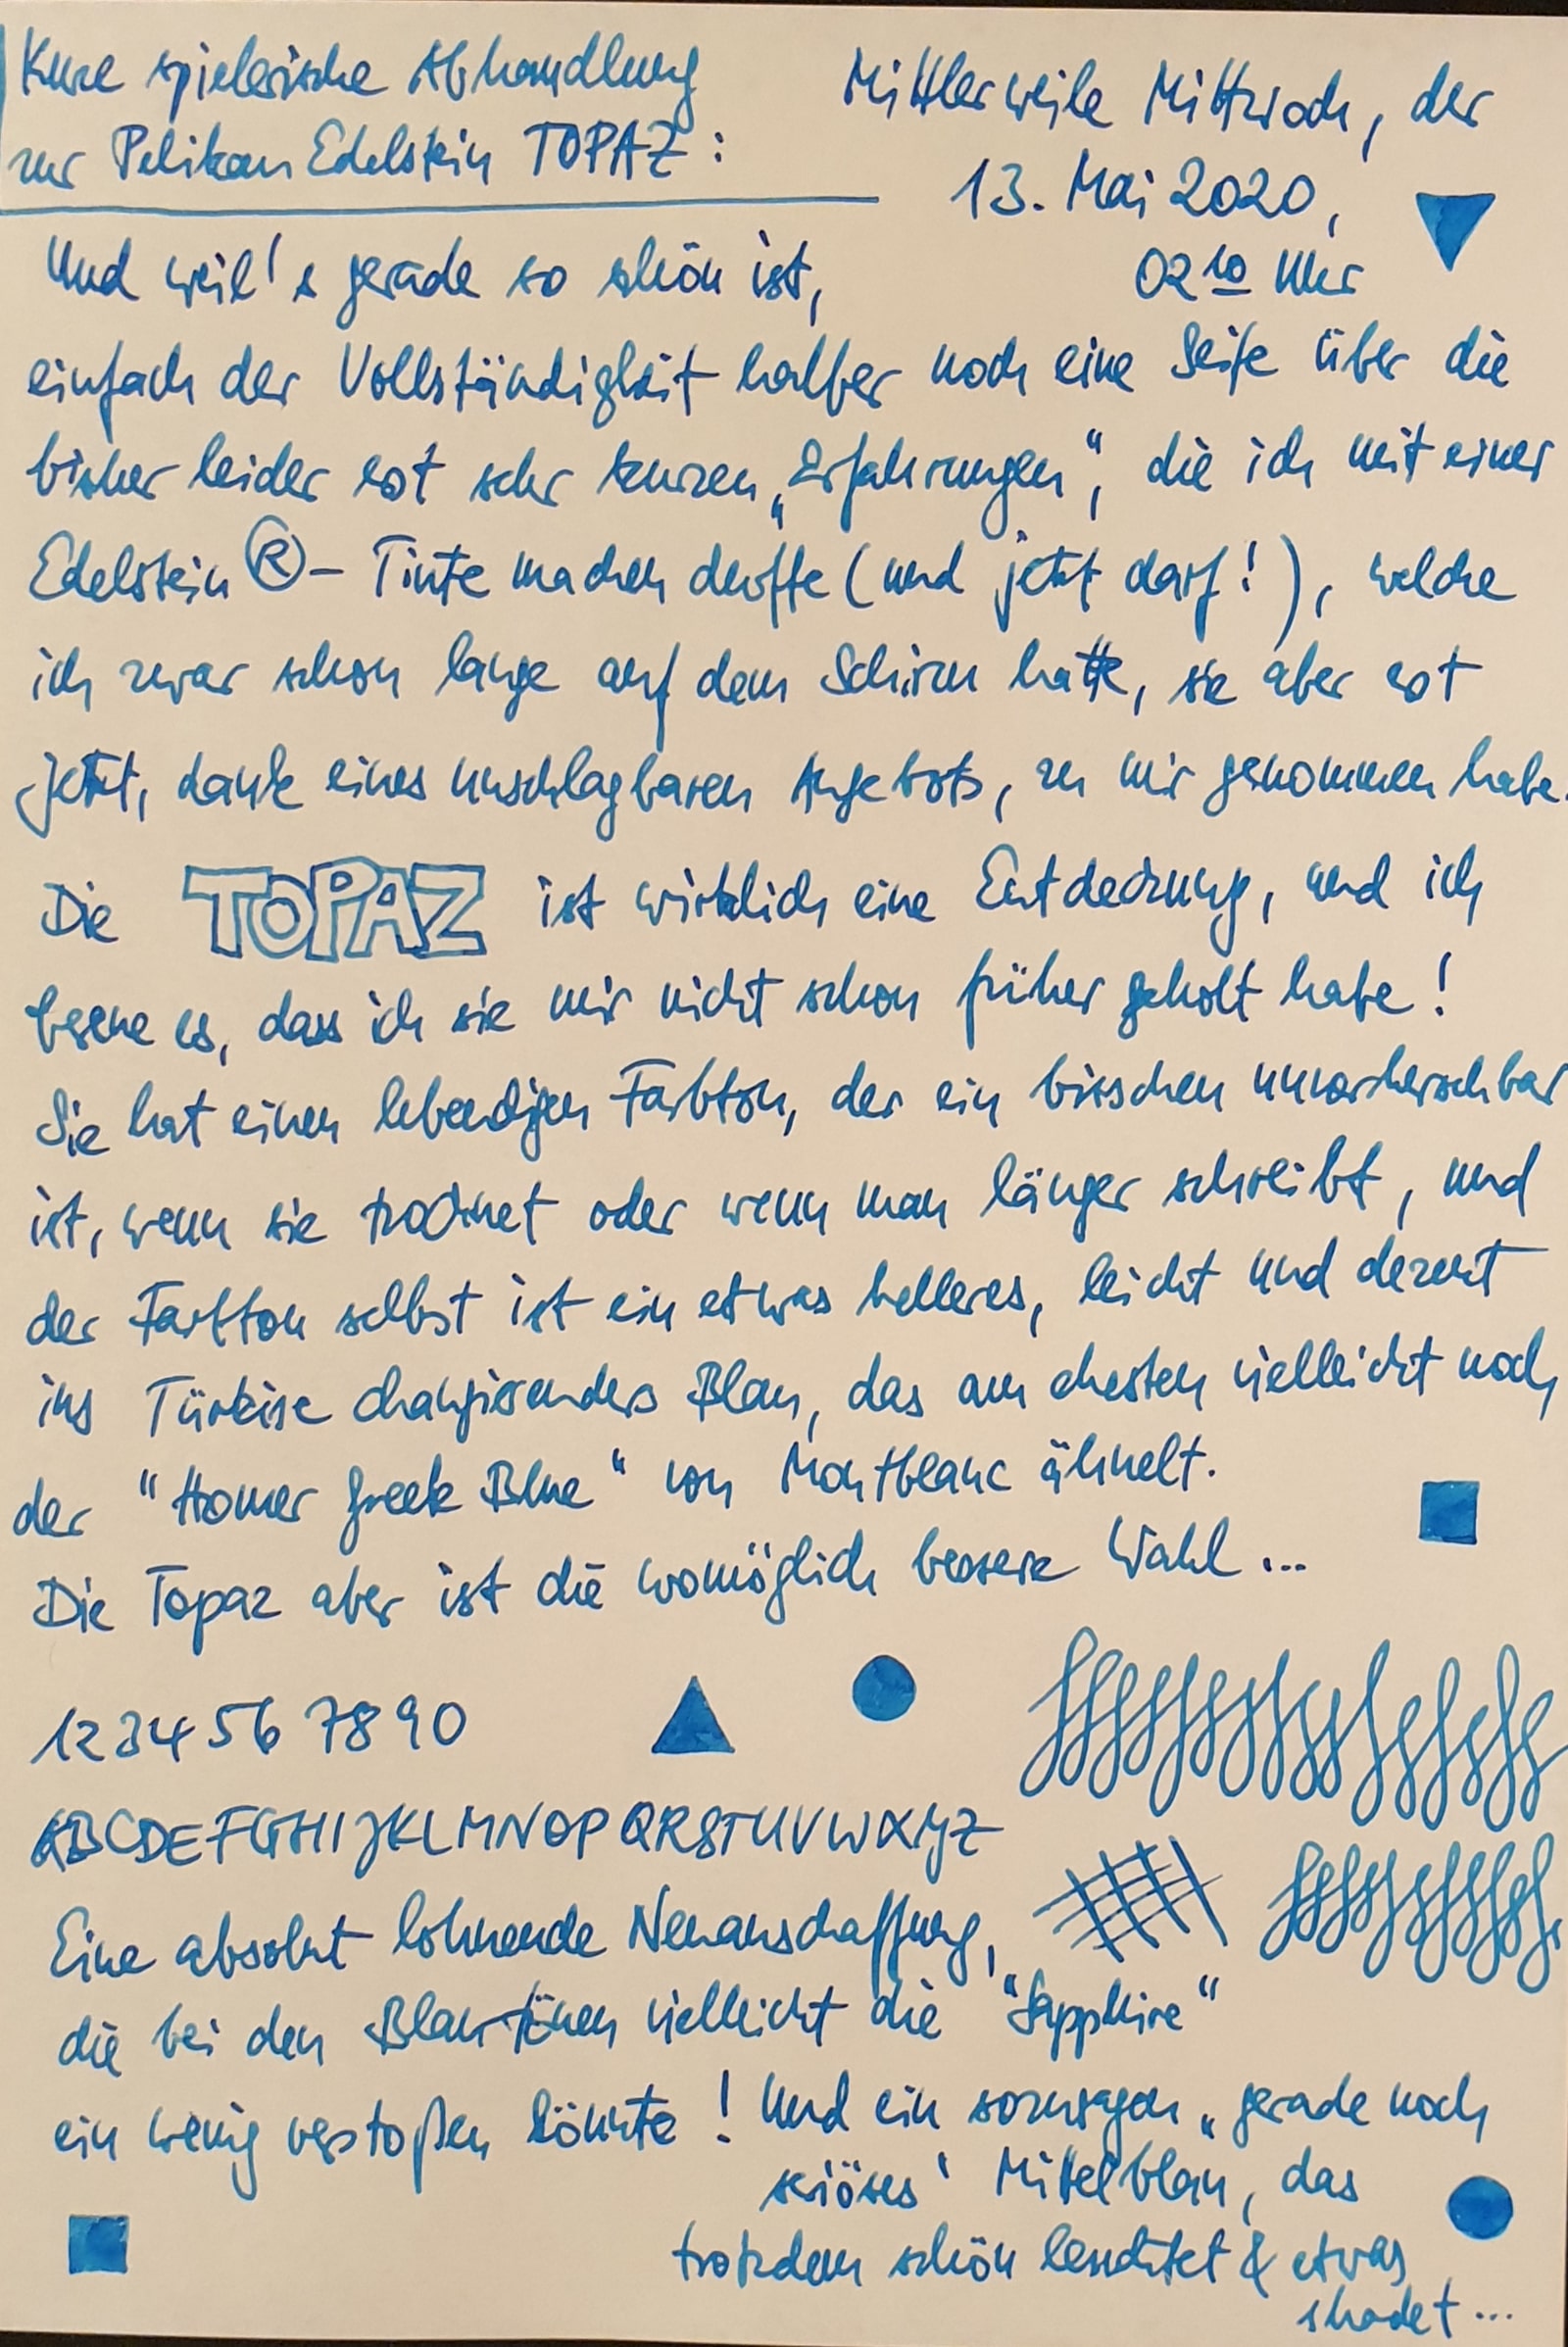 Kurze spielerische Abhandlung
zur Pelikan Edelstein TOPAZ:
Mittlerweile Mittwoch, der
13. Mai 2020,
02 10 Uhr
Und weil's gerade so schön ist,
einfach der Vollständigkeit halber noch eine Seite über die
bisher leider erst sehr kurzen „Erfahrungen“, die ich mit einer
Edelstein ®- Tinte machen durfte (und jetzt darf!), welche
ich zwar schon lange auf dem Schirm hatte, sie aber erst
jetzt, dank eines unschlagbaren Angebots, zu mir genommen habe.
Die TOPAZ ist wirklich eine Entdeckung, und ich
bereue es, dass ich sie mir nicht schon früher geholt habe!
Sie hat einen lebendigen Farbton, der ein bisschen unvorhersehbar
ist, wenn sie trocknet oder wenn man länger schreibt, und
der Farbton selbst ist ein etwas helleres, leicht und dezent
ins Türkise changierendes Blau, das am ehesten vielleicht noch
der "Homer Greek Blue" von Montblanc ähnelt.
Die Topaz aber ist die womöglich bessere Wahl...
1234567890
ABCDEFGHIJKLMNOPQRSTUVWXYZ
Eine absolut lohnende Neuanschaffung,
die bei den Blau-Tönen vielleicht die "Sapphire"
ein wenig verstoßen könnte! Und ein sozusagen „gerade noch
seriöses' Mittelblau, das
trotzdem schön leuchtet & etwas
shadet...